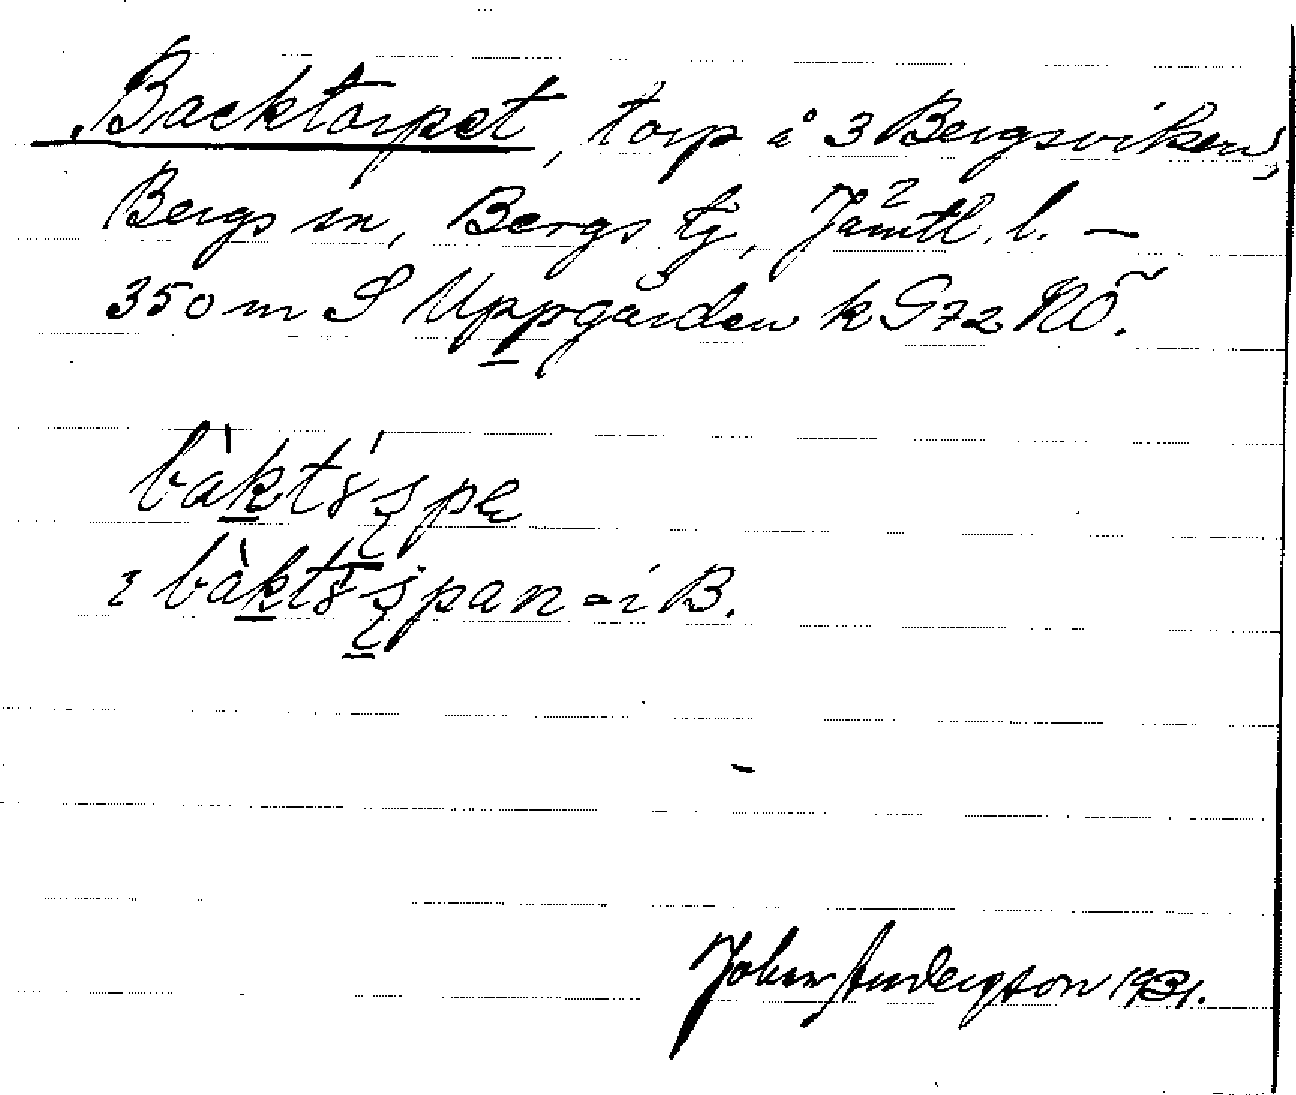 Backtorpet, torp å 3 Bergsviken,
Bergs sn, Bergs tg, Jämtl. l. —
350 m S Uppgården k G72 NÖ.
i B.
John Anderson 1931.